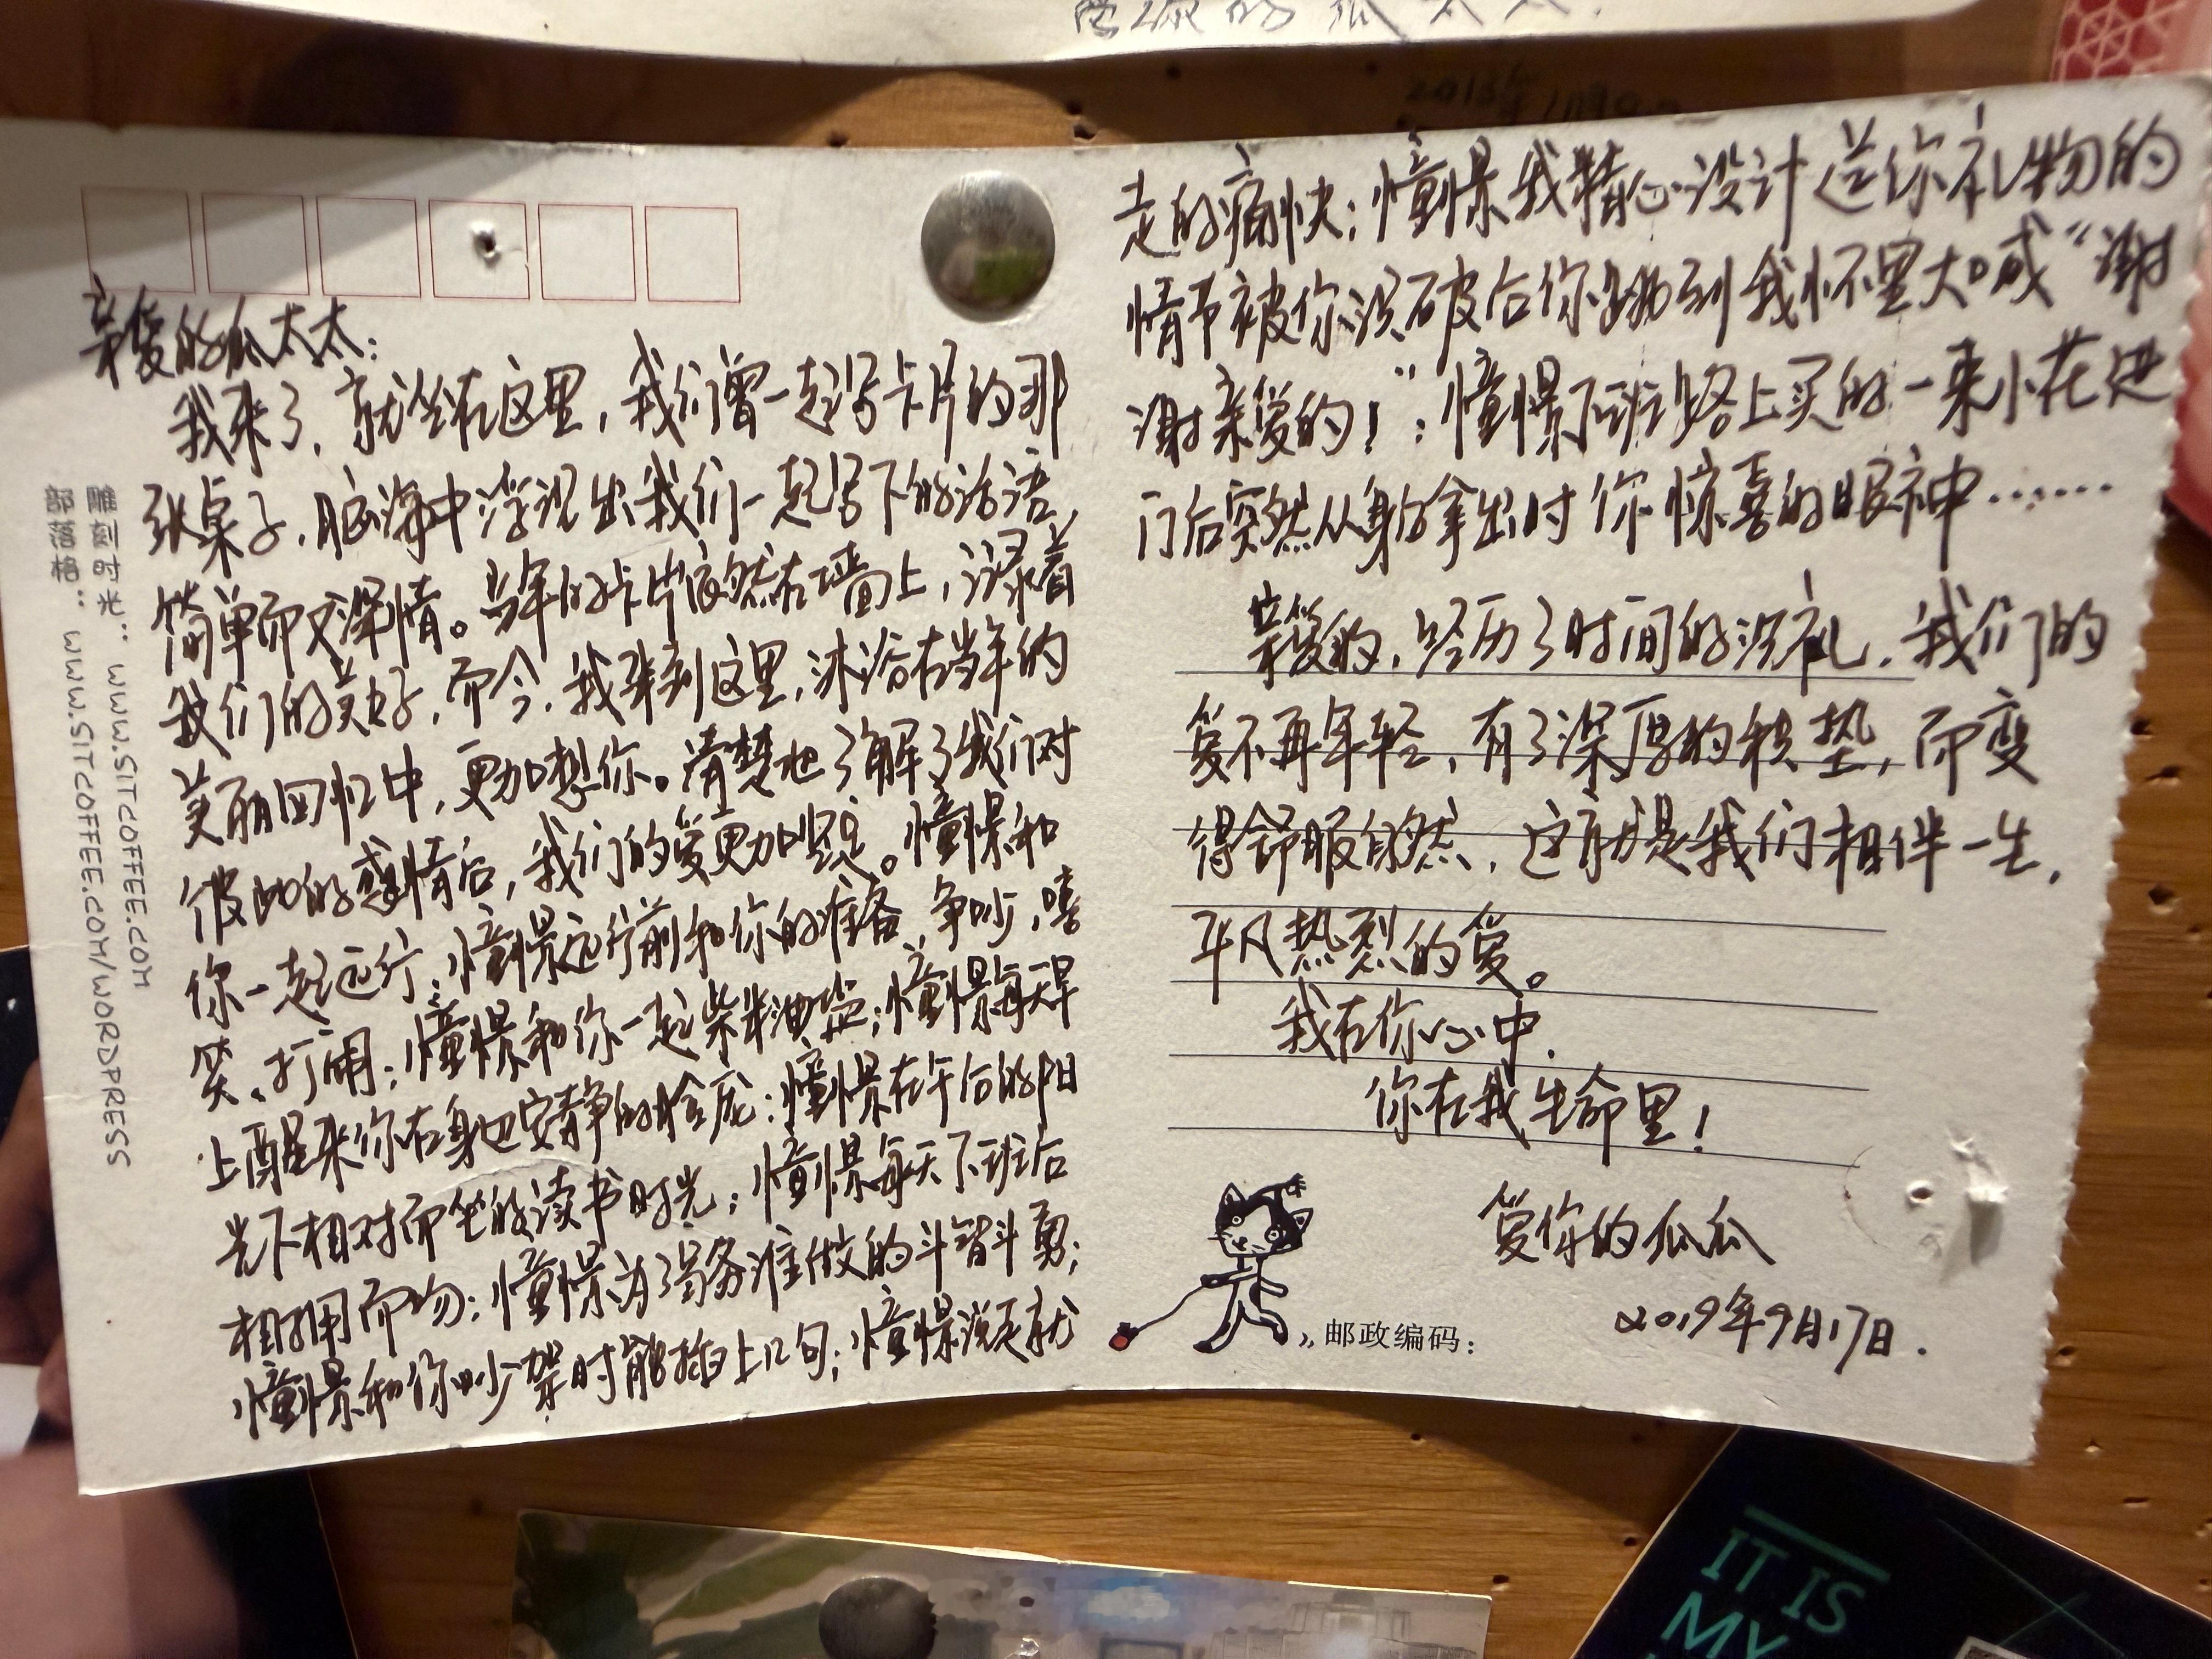 亲爱的瓜太太：
我来了，就坐在这里，我们曾一起写卡片的那
张桌子，脑海中浮现出我们一起写下的话语，
简单而又深情。当年的卡片依然在墙上，记录着
我们的美好，而今，我来到这里，沐浴在当年的
美丽回忆中，更加想你。清楚地了解了我们对
彼此的感情后，我们的爱更加坚定。憧憬和
你一起远行，憧憬远行前和你的准备、争吵、嘻
笑、打闹；憧憬和你一起柴米油盐；憧憬每天早
上醒来你在身边安静的脸庞；憧憬在午后的阳
光下相对而坐的读书时光；憧憬每天下班后
相拥而吻；憧憬为了家务谁做的斗智斗勇；
憧憬和你吵架时能插上几句；憧憬说走就
走的痛快；憧憬我精心设计送你礼物的
情节被你识破后你跳到我怀里大喊“谢
谢亲爱的！”；憧憬下班路上买的一束小花进
门后突然从身后拿出时你惊喜的眼神……
亲爱的，经历了时间的洗礼，我们的
爱不再年轻，有了深厚的积垫，而变
得舒服自然，这就是我们相伴一生，
平凡热烈的爱。
我在你心中，
你在我生命里！
爱你的瓜瓜
2019年9月17日.
邮政编码：
雕刻时光：www.SITCOFFEE.COM
部落格：www.SITCOFFEE.COM/WORDPRESS
IT IS
MY